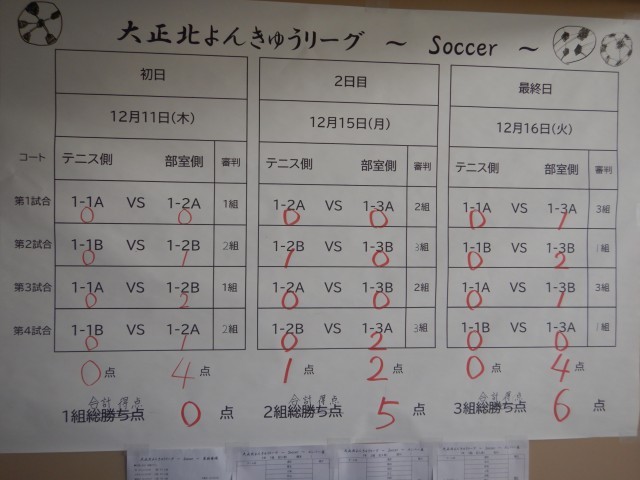 大正北よんきゅうリーグ ～ Soccer ～
初日 2日目 最終日
12月11日(木) 12月15日(月) 12月16日(火)
コート テニス側 部室側 審判 テニス側 部室側 審判 テニス側 部室側 審判
第1試合 1-1A VS 1-2A 1組 1-2A VS 1-3A 2組 1-1A VS 1-3A 3組
0 0 0 0 0 1
第2試合 1-1B VS 1-2B 2組 1-2B VS 1-3B 3組 1-1B VS 1-3B 1組
0 1 1 0 0 2
第3試合 1-1A VS 1-2B 1組 1-2A VS 1-3B 2組 1-1A VS 1-3B 3組
0 2 0 0 0 1
第4試合 1-1B VS 1-2A 2組 1-2B VS 1-3A 3組 1-1B VS 1-3A 1組
0 1 0 2 0 0
0点 4点 1点 2点 0点 4点
合計得点 合計得点 合計得点
1組総勝ち点 0 点 2組総勝ち点 5 点 3組総勝ち点 6 点